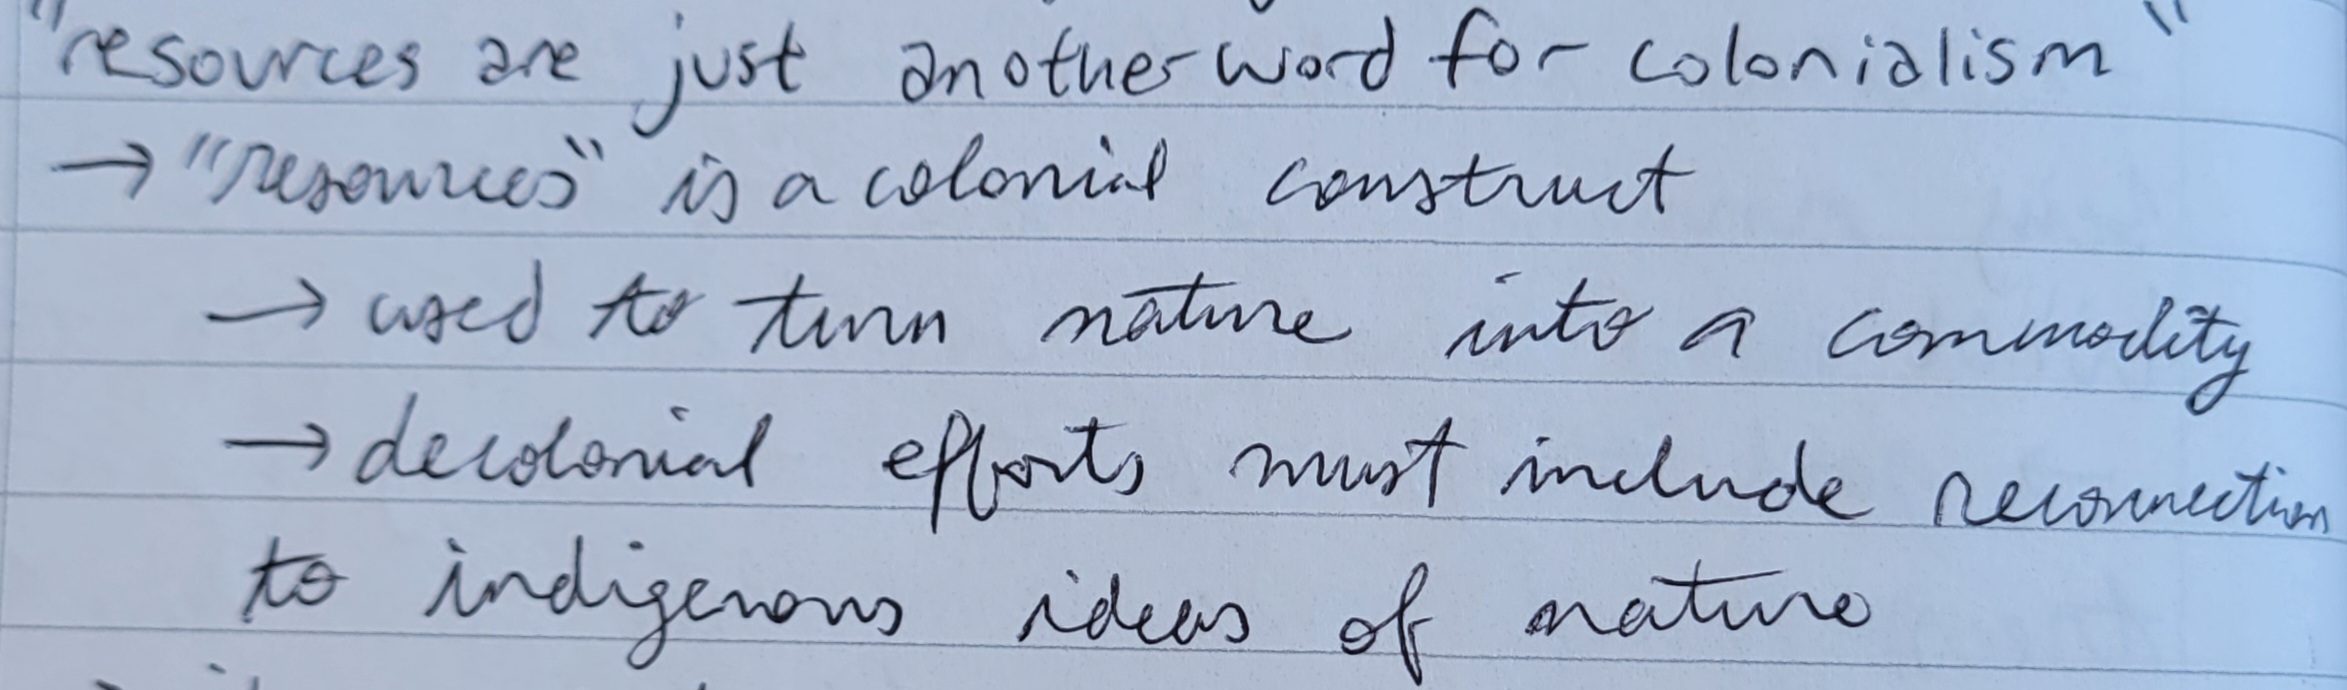 "resources are just another word for colonialism"
→ "resources" is a colonial construct
→ used to turn nature into a commodity
→ decolonial efforts must include reconnection
to indigenous ideas of nature